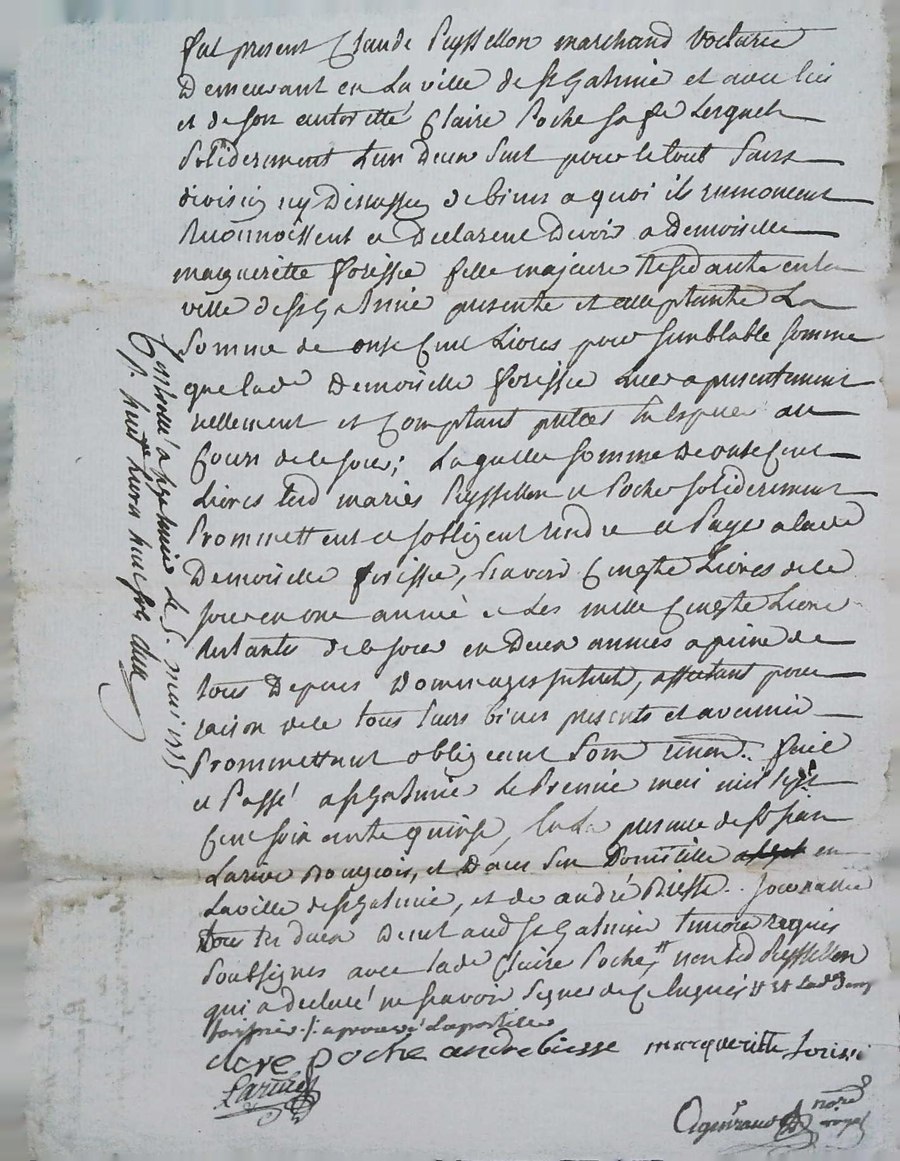 fut present Claude Peyssellon marchand voiturie
Demeurant en La ville de st Galmie et avec lui
et de son autorité Claire Poche sa fe Lesquels
Soliderement L'un Deux Seul pour le tout Sans
division ny Discussion de biens a quoi ils renoncent
Reconnoissent et Declarent Devoir a Demoiselle
margueritte forissie fille majeure Residante en la
ville de st Galmie presente et acceptante La
Somme de onse Cent Livres pour semblable somme
que lade Demoiselle forissie Leur a presentement
reellement et Comptant en Espece au
Cours de le jour; Laquelle somme De onse Cent
Livres lesd mariés Peyssellon et Poche soliderement
Promettent et sobligent rendre et Payer a lade
Demoiselle forissie, Savoir Livres de le
jour en une année et Les Livres
Restantes de le jour en Deux années a peine de
tous Depens Dommages interets, affectant pour
raison de le tous leurs biens presents et avenir
Promettant obligeant Soum renon. fait
et Passé a st Galmie Le Premie mai mil sept
Cent soixante quinse, en La presence de sr jean
Larive Bourgeois, et Dans Son Domicille en
La ville de st Galmie, et de andré Biesse journallie
tous les deux Demeurand st Galmie temoins requis
Soussignes avec lade Claire Poche, non led Peyssellon
qui a declaré ne savoir signer de Ce enquis et lade
forissie aprouvé L'apostille
clere poche andrebiesse margueritte forissie
Larive
nore royal
Controllé a st galmie Le 5. mai 1775
Rt. huit sols